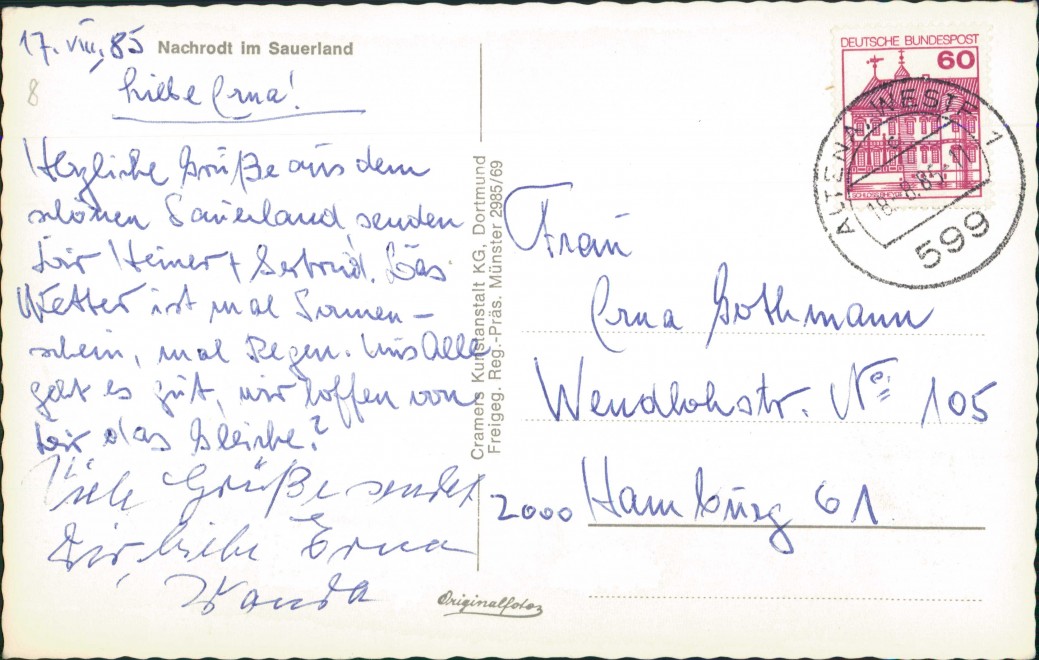 17. VIII. 85 Nachrodt im Sauerland
8
Liebe Erna!
Herzliche Grüße aus dem
schönen Sauerland senden
Dir Heiner + Gertrud. Das
Wetter ist mal Sonnen-
schein, mal Regen. Uns Alle
geht es gut, wir hoffen von
Dir das Gleiche?
Viele Grüße sendet
Dir, liebe Erna
Wanda
Cramers Kunstanstalt KG, Dortmund
Freigeg. Reg.-Präs. Münster 2985/69
Originalfoto
DEUTSCHE BUNDESPOST
60
SCHLOSS RHEYDT
ALTENA, WESTF 1
18.-8.85.-11
599
Frau
Erna Gothmann
Wendlohstr. No 105
2000 Hamburg 61